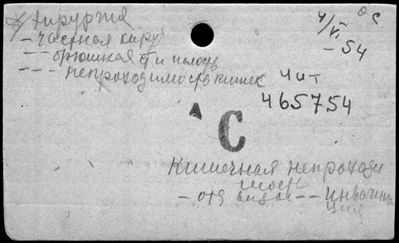 Хирургия
4/VI
- частная хирур
-54
-- брюшная ст и полость
--- непроходимость кишек
Чит
465754
С
Кишечная непроходи
мость
- отд виды -- Инвагина
ция